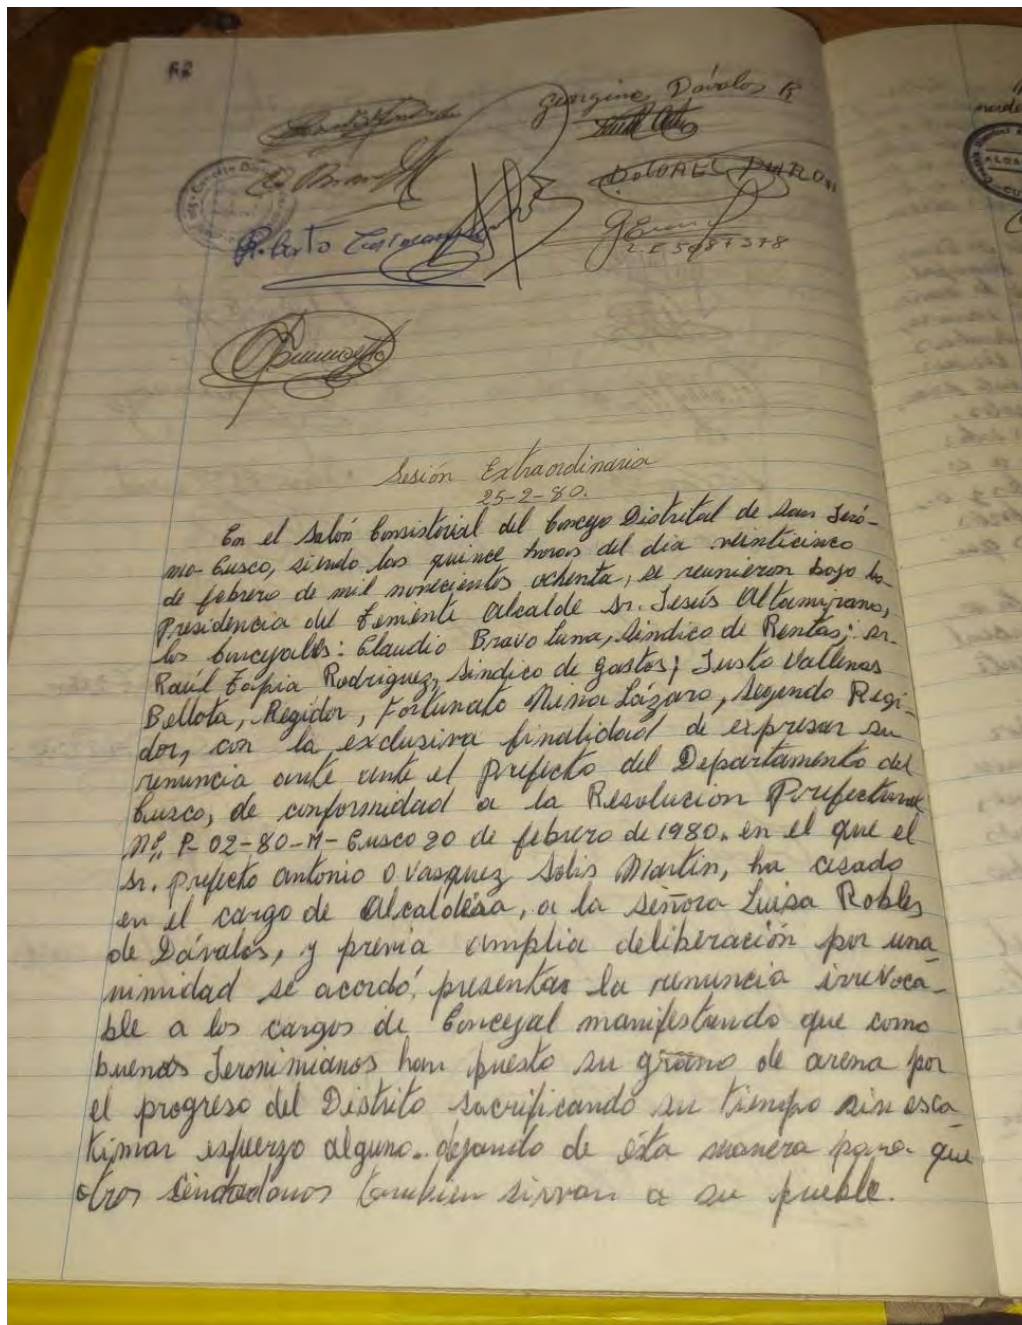 Georgina Dávalos R
Roberto
L E 5087378
Sesión Extraordinaria
25-2-80.
En el Salón Consistorial del Concejo Distrital de San Jeró-
mo-Cusco, siendo las quince horas del dia veinticinco
de febrero de mil novecientos ochenta, se reunieron bajo la
Presidencia del Teniente Alcalde Sr. Jesús Altamirano,
los Concejales: Claudio Bravo Luna, Sindico de Rentas; Sr.
Raúl Tapia Rodriguez, Sindico de gastos; Justo Vallenas
Bellota, Regidor, Fortunato Nina Lázaro, Segundo Regi-
dor, con la exclusiva finalidad de expresar su
renuncia ante ante el prefecto del Departamento del
Cusco, de conformidad a la Resolucion Prefectural
Nº. P-02-80-M-Cusco 20 de febrero de 1980. en el que el
Sr. prefecto Antonio O Vasquez Solis Martin, ha cesado
en el cargo de Alcaldesa, a la señora Luisa Robles
de Dávalos, y previa amplia deliberación por una
nimidad se acordó, presentar la renuncia irrevoca-
ble a los cargos de Concejal manifestando que como
buenos Jeronimianos han puesto su grano de arena por
el progreso del Distrito sacrificando su tiempo sin esca
timar esfuerzo alguno. dejando de ésta manera para que
otros ciudadanos tambien sirvan a su pueblo.